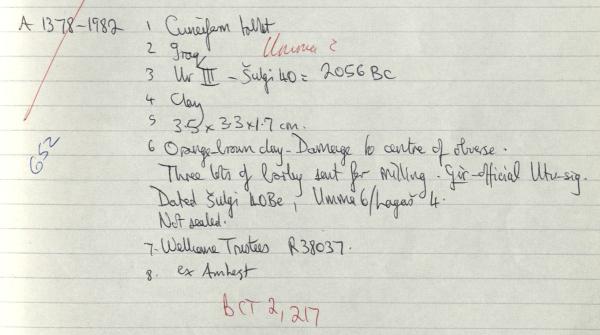 A 1378-1982 1 Cuneiform tablet
2 Iraq Umma ?
3 Ur III - Šulgi 40 = 2056 BC
4 Clay
5 3.5 x 3.3 x 1.7 cm.
652
6 Orange-brown clay - Damage to centre of obverse.
Three lots of barley sent for milling. Gìr-official Utu-sig.
Dated Šulgi 40 Be, Umma 6/Lagaš 4.
Not sealed.
7. Wellcome Trustees R38037.
8. ex Amherst
BCT 2, 217